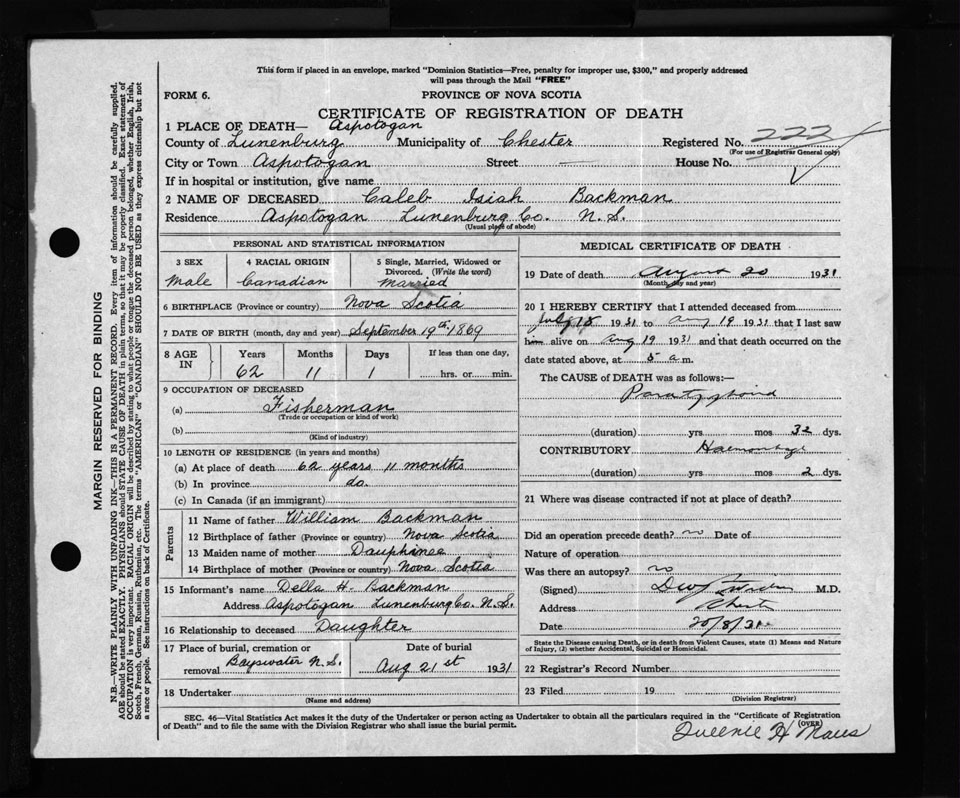 This form if placed in an envelope, marked "Dominion Statistics—Free, penalty for improper use, $300," and properly addressed
will pass through the Mail "FREE"
FORM 6.
PROVINCE OF NOVA SCOTIA
CERTIFICATE OF REGISTRATION OF DEATH
1 PLACE OF DEATH— Aspotogan
County of Lunenburg Municipality of Chester Registered No. 222
(For use of Registrar General only)
City or Town Aspotogan Street — House No.
If in hospital or institution, give name
2 NAME OF DECEASED Caleb Isiah Backman
Residence Aspotogan Lunenburg Co. N. S.
(Usual place of abode)
PERSONAL AND STATISTICAL INFORMATION
3 SEX 4 RACIAL ORIGIN 5 Single, Married, Widowed or
Divorced. (Write the word)
Male Canadian Married
6 BIRTHPLACE (Province or country) Nova Scotia
7 DATE OF BIRTH (month, day and year) September 19th 1869
8 AGE IN Years Months Days If less than one day,
62 11 1 hrs. or min.
9 OCCUPATION OF DECEASED
(a) Fisherman
(Trade or occupation or kind of work)
(b)
(Kind of industry)
10 LENGTH OF RESIDENCE (in years and months)
(a) At place of death 62 years 11 months
(b) In province do.
(c) In Canada (if an immigrant)
Parents
11 Name of father William Backman
12 Birthplace of father (Province or country) Nova Scotia
13 Maiden name of mother Dauphinee
14 Birthplace of mother (Province or country) Nova Scotia
15 Informant's name Della H. Backman
Address Aspotogan Lunenburg Co. N. S.
16 Relationship to deceased Daughter
17 Place of burial, cremation or Date of burial
removal Bayswater N.S. Aug 21st 1931
18 Undertaker
(Name and address)
MEDICAL CERTIFICATE OF DEATH
19 Date of death August 20 1931
(Month, day and year)
20 I HEREBY CERTIFY that I attended deceased from
July 18 1931 to Aug 19 1931 that I last saw
him alive on Aug 19 1931 and that death occurred on the
date stated above, at 5 a m.
The CAUSE OF DEATH was as follows:—
Paratyphoid
(duration) yrs mos 32 dys.
CONTRIBUTORY Haemorrhage
(duration) yrs mos 2 dys.
21 Where was disease contracted if not at place of death?
Did an operation precede death? no Date of
Nature of operation
Was there an autopsy? no
(Signed) M.D.
Address Chester
Date 20/8/31
State the Disease causing Death, or in death from Violent Causes, state (1) Means and Nature
of Injury, (2) whether Accidental, Suicidal or Homicidal.
22 Registrar's Record Number
23 Filed 19
(Division Registrar)
SEC. 46—Vital Statistics Act makes it the duty of the Undertaker or person acting as Undertaker to obtain all the particulars required in the "Certificate of Registration
of Death" and to file the same with the Division Registrar who shall issue the burial permit. (OVER)
MARGIN RESERVED FOR BINDING
N.B.—WRITE PLAINLY WITH UNFADING INK—THIS IS A PERMANENT RECORD. Every item of information should be carefully supplied.
AGE should be stated EXACTLY. PHYSICIANS should STATE CAUSE OF DEATH in plain terms, so that it may be properly classified. Exact statement of
OCCUPATION is very important. RACIAL ORIGIN will be described by stating to what people or tongue the deceased person belonged, whether English, Irish,
Scotch, French, German, Russian, Ruthenian, etc. The terms "AMERICAN" or "CANADIAN" SHOULD NOT BE USED as they express citizenship but not
a race or people. See instructions on back of Certificate.